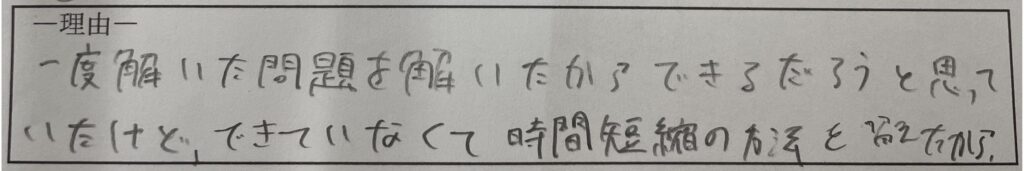 ―理由―
一度解いた問題を解いたからできるだろうと思って
いたけど、できていなくて時間短縮の方法を たから.